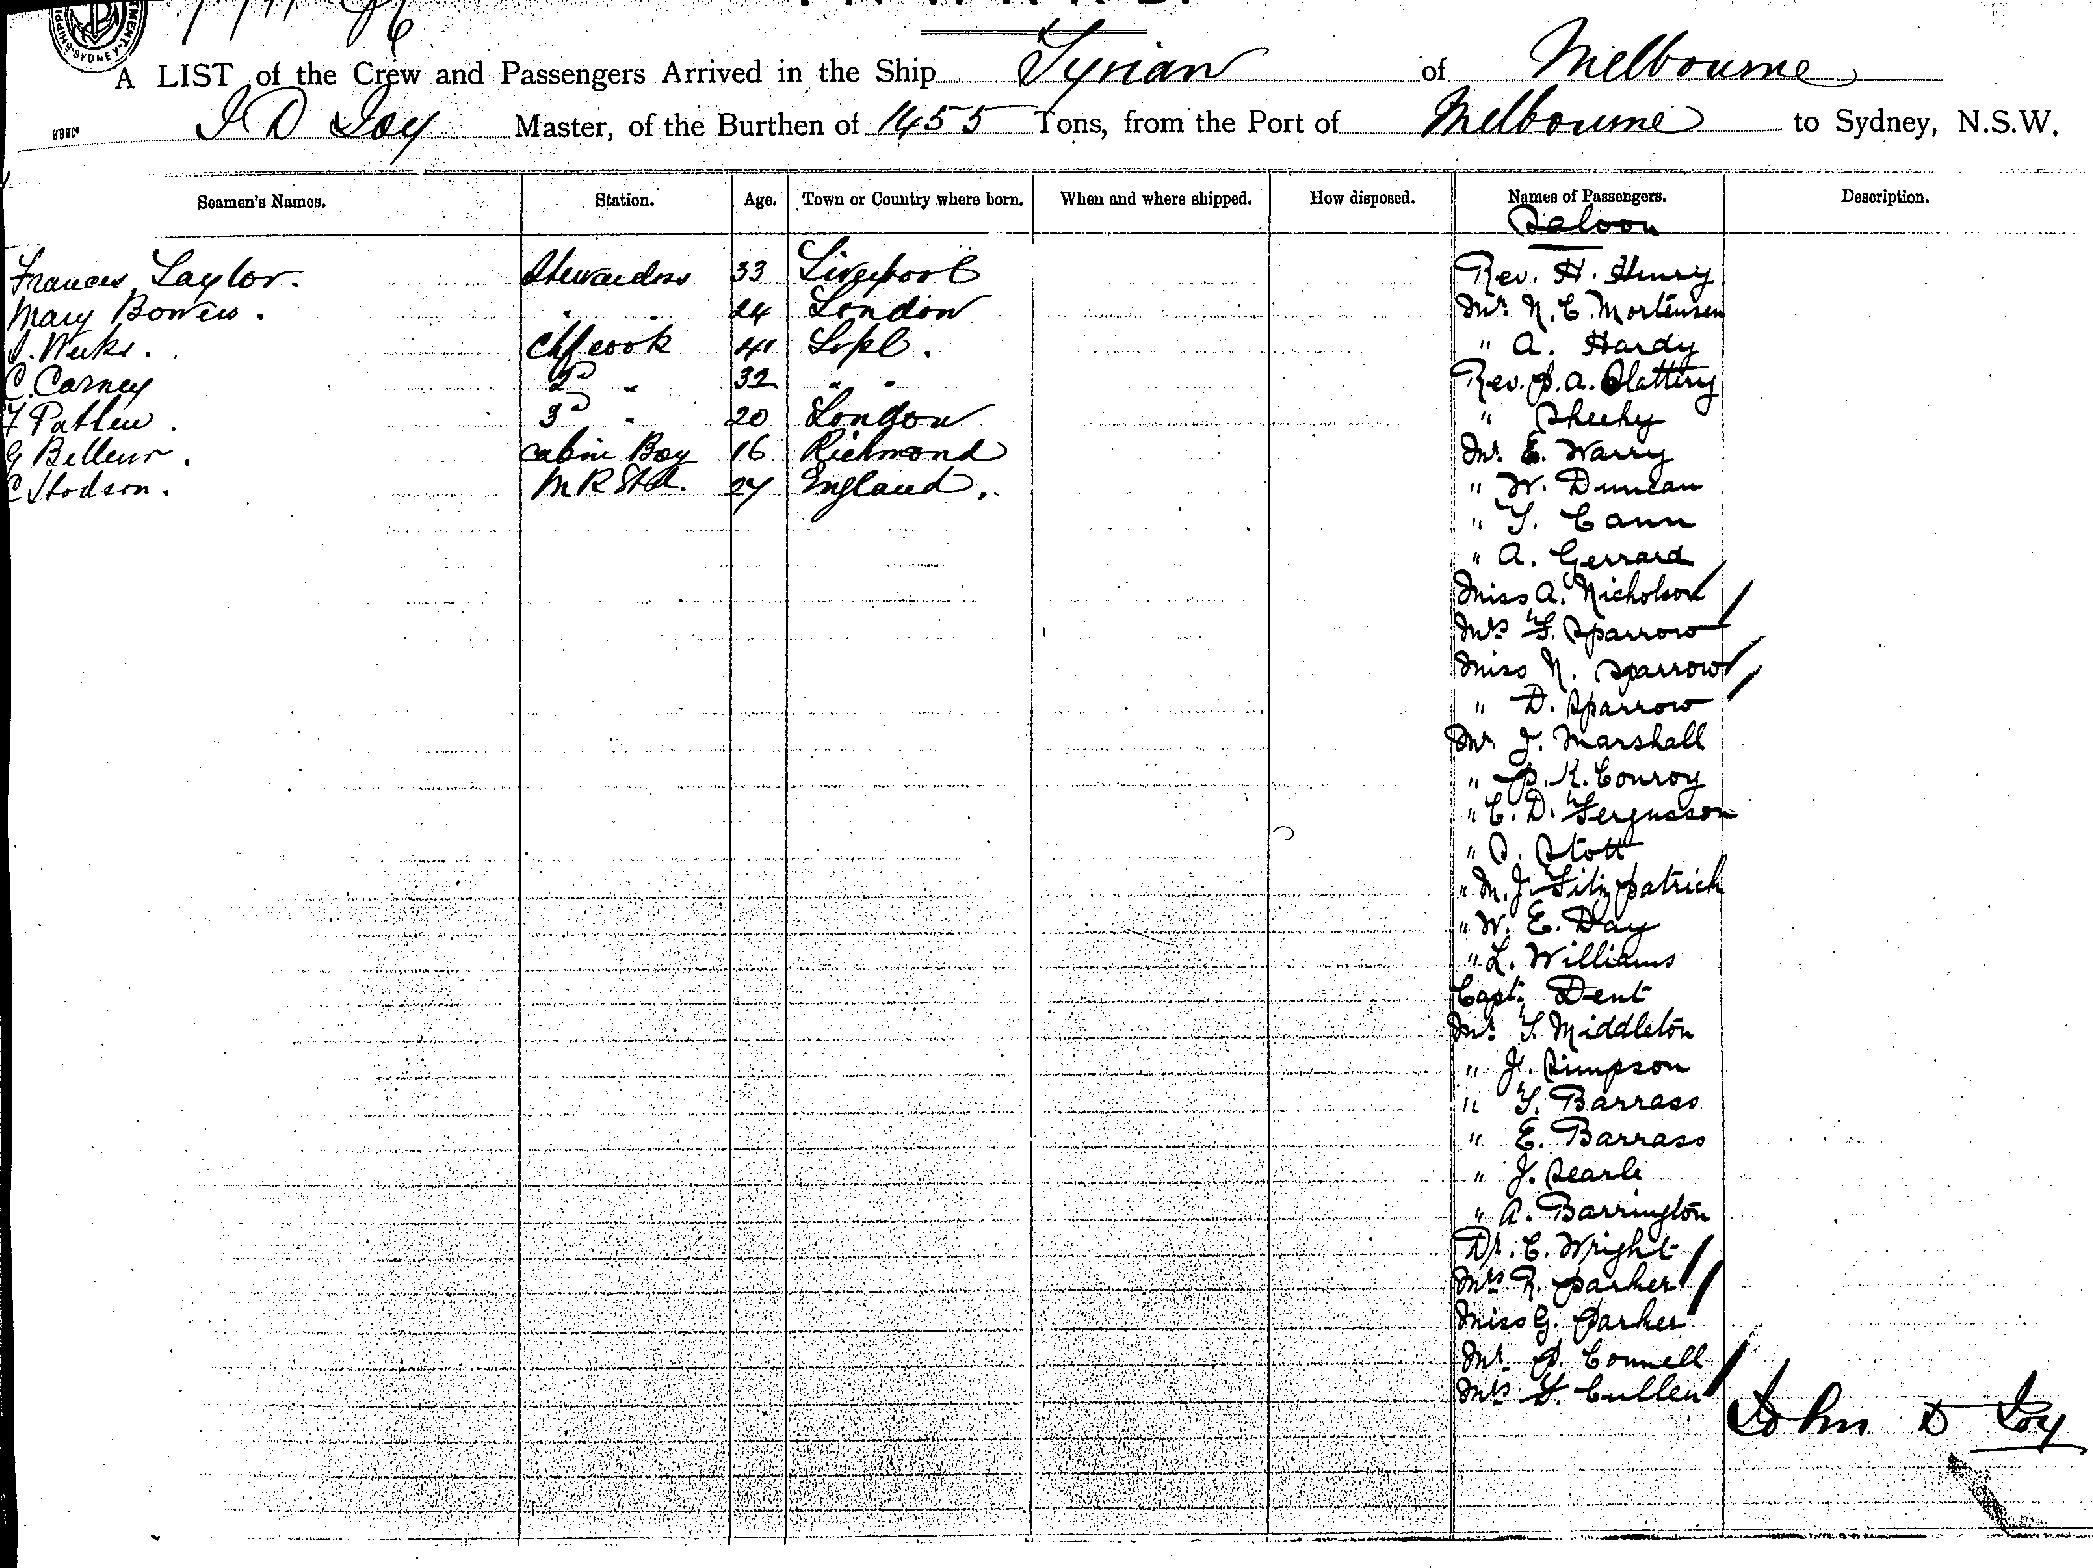 A LIST of the Crew and Passengers Arrived in the Ship Tyrian of Melbourne
J D Joy Master, of the Burthen of 1455 Tons, from the Port of Melbourne to Sydney, N.S.W.
Seamen's Names. Station. Age. Town or Country where born. When and where shipped. How disposed. Names of Passengers. Description.
Saloon
Frances Taylor. Stewardess 33 Liverpool Rev. H. Henry
Mary Bowers. " " 24 London Mr. N. C. Mortensen
Weeks. Chf cook 41 Lpl. " A. Hardy
C. Carney 2d " 32 " " Rev. P. A. Slattery
F Patten. 3d " 20 London " Sheehy
G Belleur. Cabin Boy 16 Richmond Mr. E. Warry
C Hodson. M R Std. 27 England. " W. Duncan
" T. Cann
" A. Gerrard
Miss A. Nicholson
Mrs F. Sparrow
Miss N. Sparrow
" D. Sparrow
Mr J. Marshall
" P. K. Conroy
" C. D. Fergusson
" S. Stott
" M. J. Fitzpatrick
" W. E. Day
" L. Williams
Capt. Dent
Mr. T. Middleton
" J. Simpson
" T. Barrass
" E. Barrass
" J. Searle
" A. Barrington
Dr. C. Wright
Mrs R. Parker
Miss G. Parker
Mr. P. Connell
Mrs Cullen
John D Joy